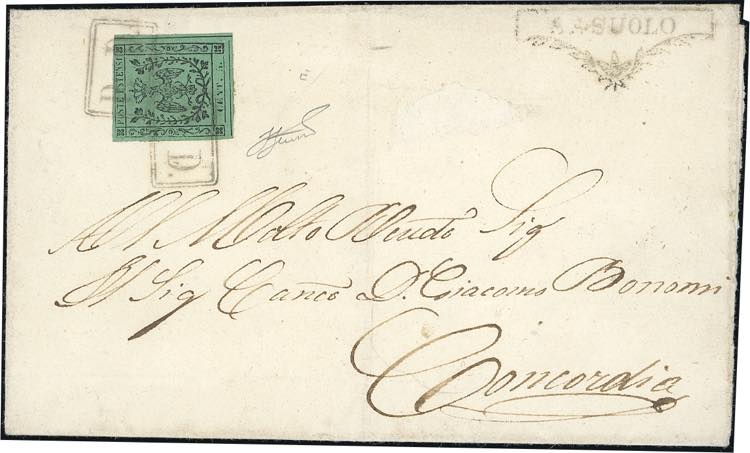 SASSUOLO
POSTE ESTENSI
CENT. 5.
P. D.
P. D.
Al Molto Revdo Sig
Il Sig Canco D. Giacomo Bonomi
Concordia